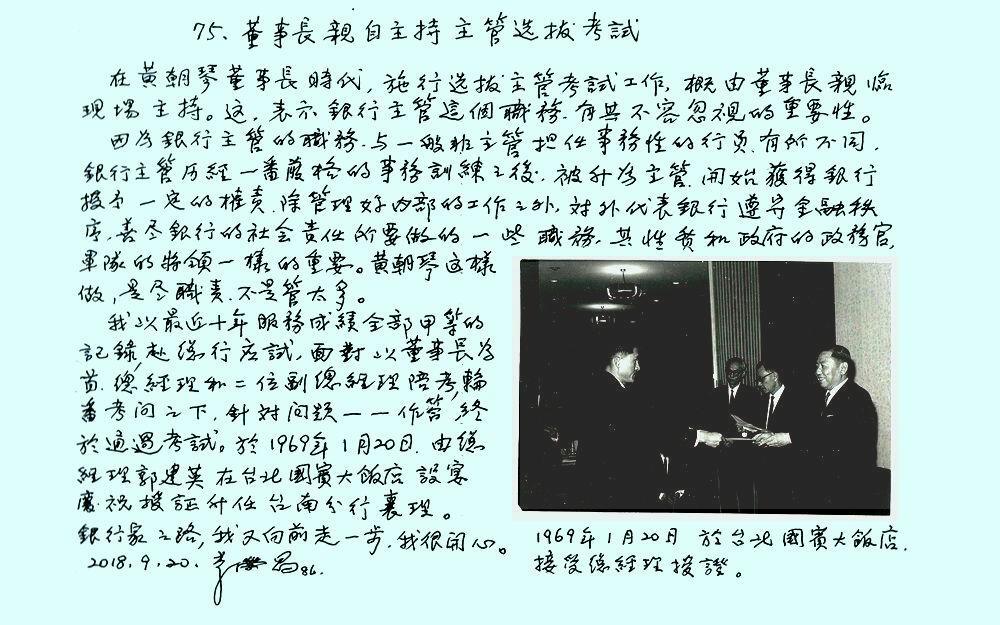 75、董事長親自主持主管选拔考試
在黄朝琴董事長時代，施行选拔主管考試工作，概由董事長親臨
現場主持。这，表示銀行主管這個職務，有其不容忽視的重要性。
因为銀行主管的職務，与一般非主管担任事務性的行员，有所不同，
銀行主管历經一番嚴格的事務訓練之後，被升为主管，開始獲得銀行
授予一定的權責，除管理好内部的工作之外，対外代表銀行遵守金融秩
序，善尽銀行的社会責任所要做的一些職務，其性質和政府的政務官，
軍隊的將領一樣的重要。黄朝琴这樣
做，是尽職責，不是管太多。
我以最近十年服務成績全部甲等的
記錄，赴總行应試，面對以董事長为
首，總經理和二位副總經理陪考，輪
番考问之下，針対问題一一作答，終
於通過考試。於1969年1月20日，由總
經理郭建英在台北國賓大飯店設宴
慶祝授証升任台南分行襄理。
銀行家之路，我又向前走一步，我很開心。
2018.9.20.
86.
1969年1月20日於台北國賓大飯店，
接受總經理授證。